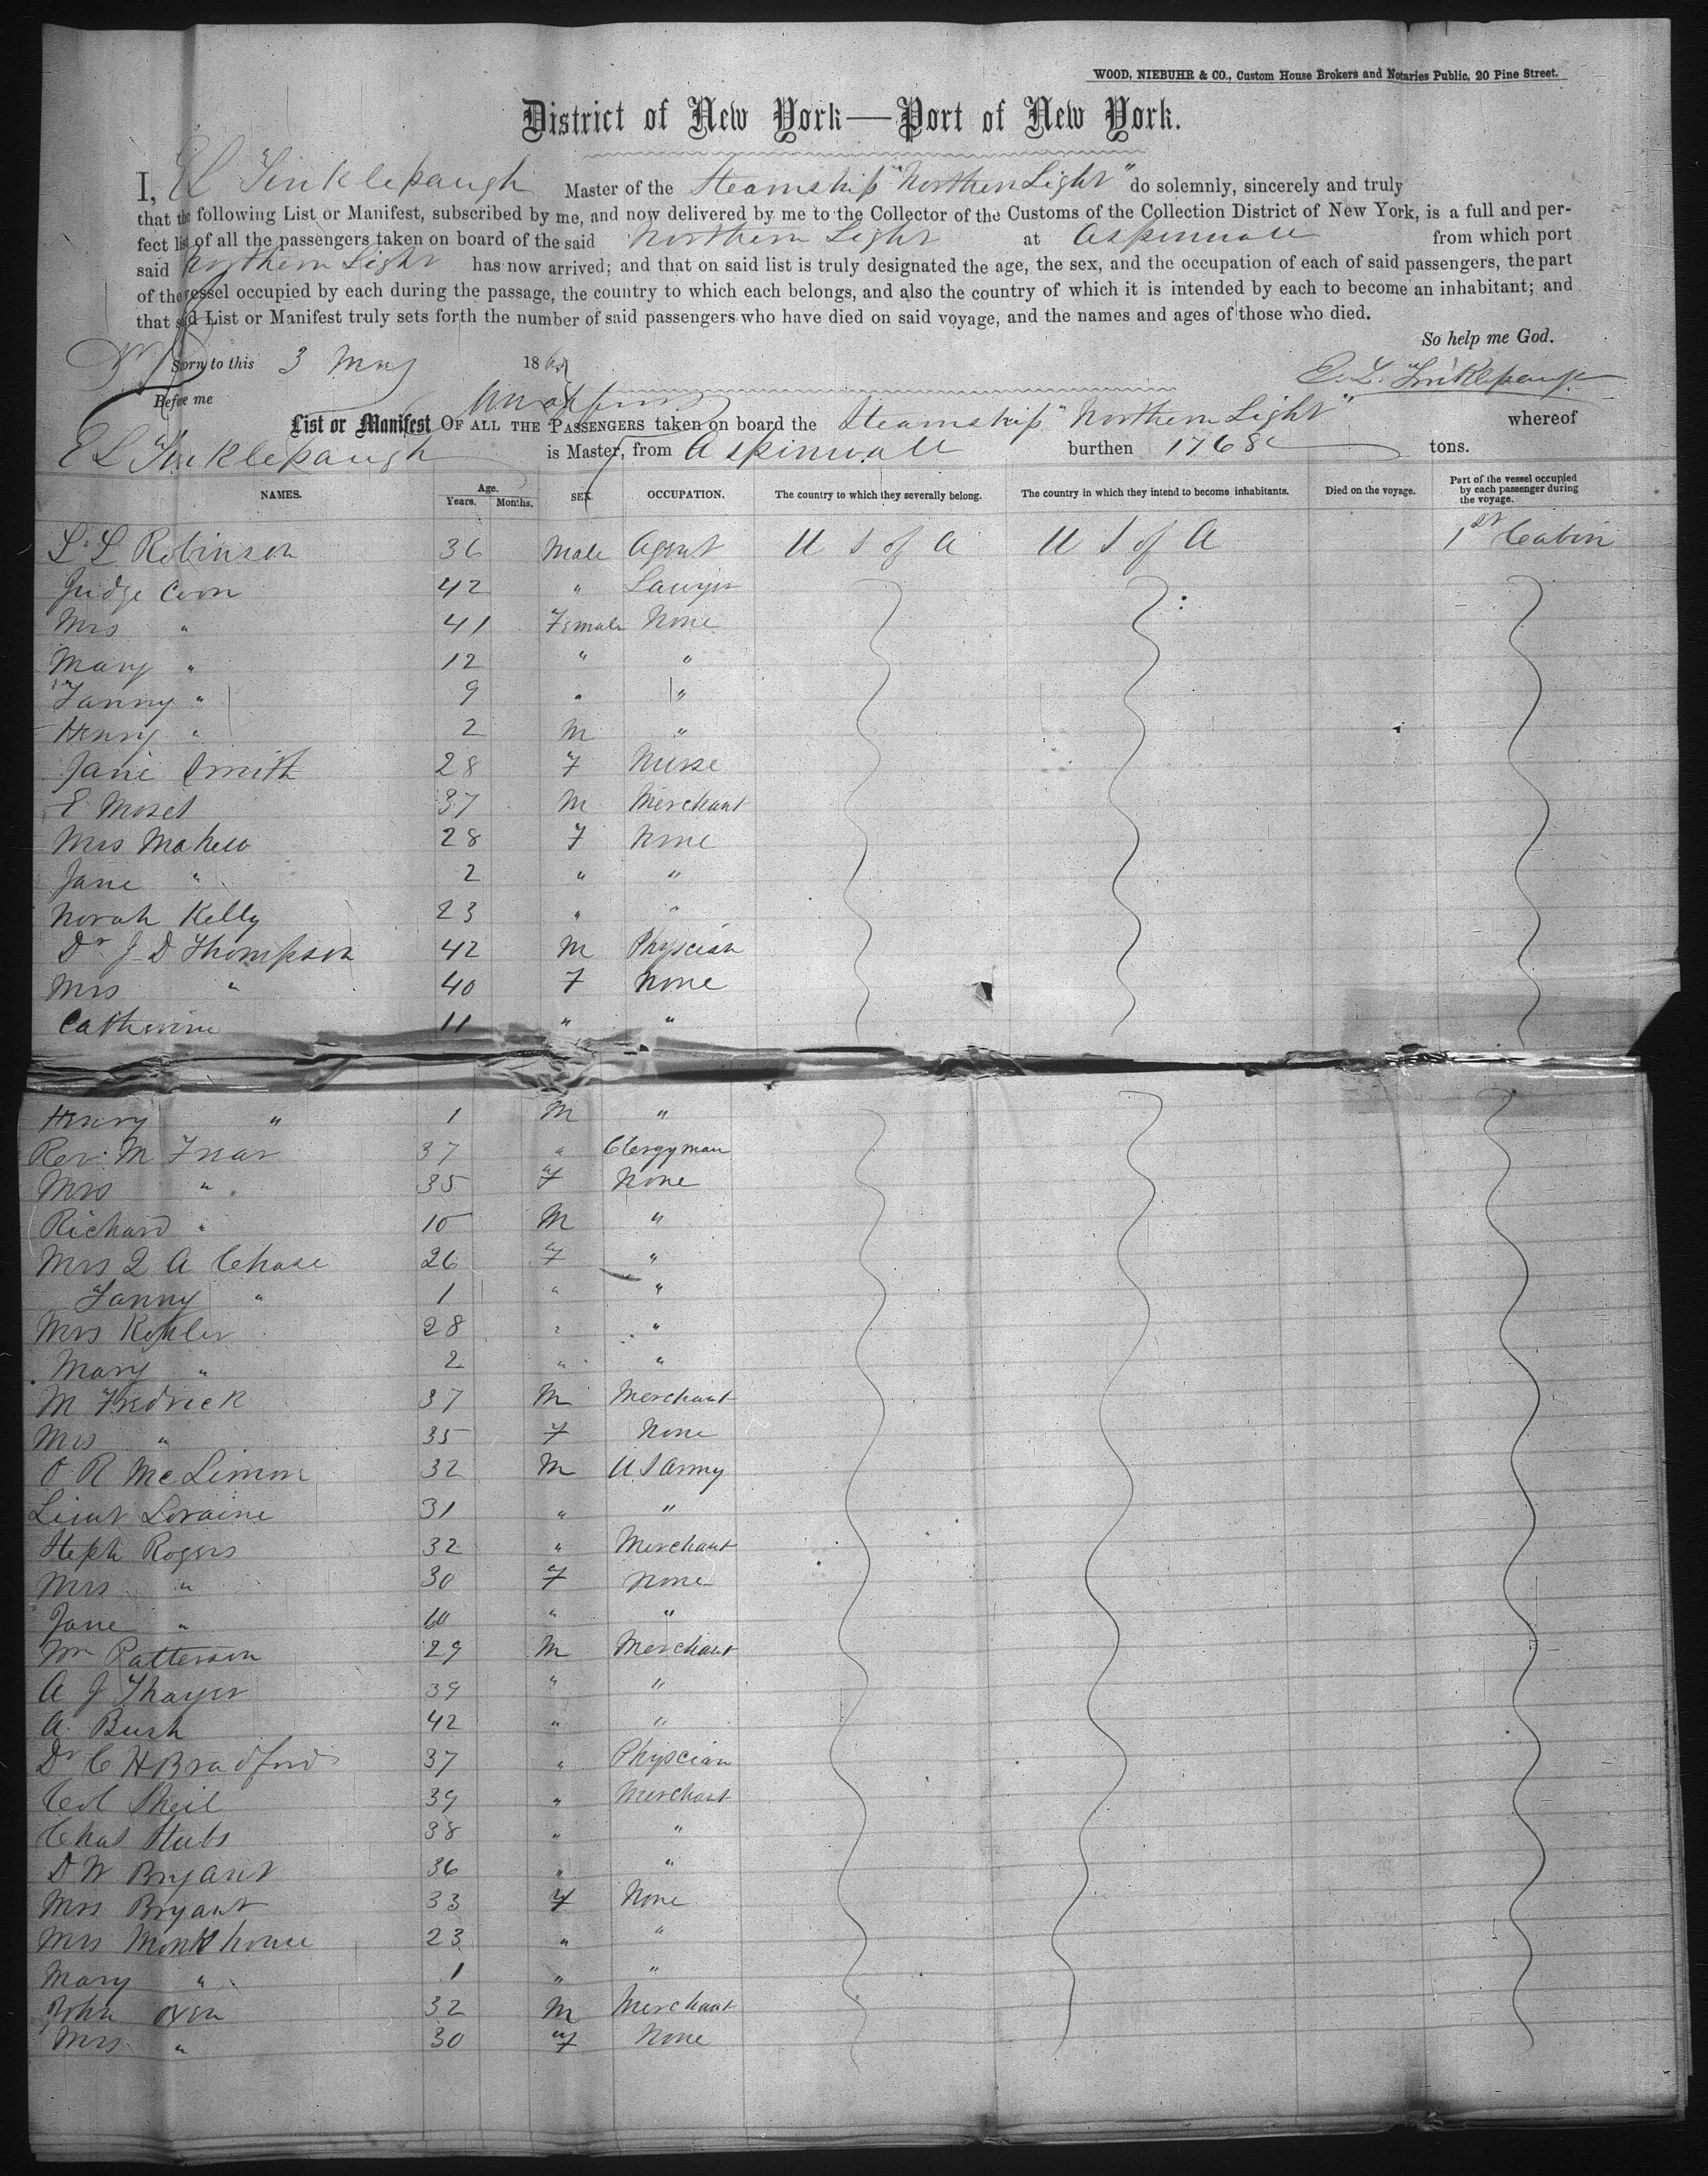 WOOD, NIEBUHR & CO., Custom House Brokers and Notaries Public, 20 Pine Street.
District of New York—Port of New York.
I, E L Tinklepaugh Master of the Steamship "Northern Light" do solemnly, sincerely and truly
that the following List or Manifest, subscribed by me, and now delivered by me to the Collector of the Customs of the Collection District of New York, is a full and per-
fect list of all the passengers taken on board of the said Northern Light at Aspinwall from which port
said Northern Light has now arrived; and that on said list is truly designated the age, the sex, and the occupation of each of said passengers, the part
of the vessel occupied by each during the passage, the country to which each belongs, and also the country of which it is intended by each to become an inhabitant; and
that said List or Manifest truly sets forth the number of said passengers who have died on said voyage, and the names and ages of those who died.
So help me God.
Sworn to this 3 May 186
E. L. Tinklepaugh
Before me
List or Manifest OF ALL THE PASSENGERS taken on board the Steamship "Northern Light" whereof
E L Tinklepaugh is Master, from Aspinwall burthen 1768 tons.
NAMES. Age. Years. Months. SEX. OCCUPATION. The country to which they severally belong. The country in which they intend to become inhabitants. Died on the voyage. Part of the vessel occupied by each passenger during the voyage.
L L Robinson 36 Male Agent U S of A U S of A 1st Cabin
Judge Coon 42 " Lawyer
Mrs " 41 Female None
Mary " 12 " "
Fanny " 9 " "
Henry " 2 M "
Jane Smith 28 F Nurse
E Moses 37 M Merchant
Mrs Mahew 28 F None
Jane " 2 " "
Norah Kelly 23 " "
Dr J D Thompson 42 M Physcian
Mrs " 40 F None
Catherine 11 " "
Henry " 1 M "
Rev. M Friar 37 " Clergyman
Mrs " 35 F None
Richard " 10 M "
Mrs Q A Chase 26 F "
Fanny " 1 " "
Mrs Kohler 28 " "
Mary " 2 " "
M Fredrick 37 M Merchant
Mrs " 35 F None
O R McLimon 32 M U S Army
Lieut Loraine 31 " "
Steph Rogers 32 " Merchant
Mrs " 30 F None
Jane " " "
Wm Patterson 29 M Merchant
A J Thayer 39 " "
A. Bush 42 " "
Dr C H Bradford 37 " Physcian
Col Sheil 39 " Merchant
Chas Stubs 38 " "
D W Bryant 36 " "
Mrs Bryant 33 F None
Mrs Monkhouse 23 " "
Mary " 1 " "
John Oxen 32 M Merchant
Mrs " 30 F None